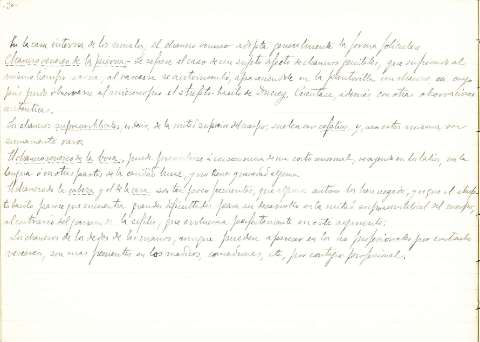 En la cara interna de los muslos, el chancro venéreo adopta generalmente la forma folicular.
Chancro venéreo de la pierna.- Se refiere el caso de un sujeto afecto de chancros genitales, que
mismo tiempo sarna, al rascarse se autoinoculó, apareciendo en la pantorrilla un chancro en cuyo
pus pudo observarse al microscopio el strepto-bacilo de Ducrey. Cuéntase, además con otras observaciones
auténticas.
Los chancros supraumbilicales, es decir, de la mitad superior del cuerpo, suelen ser cefálicos, y, aun estos mismos son
sumamente raros.
El chancro venéreo de la boca, puede presentarse a consecuencia de un coito anormal, en los labios, en la
lengua o en otras partes de la cavidad bucal, y no tiene gravedad alguna.
El chancro de la cabeza y el de la cara son tan poco frecuentes, que algunos autores los han negado, porque el strepto
bacilo parece que encuentra grandes dificultades para su desarrollo en la mitad supraumbilical del cuerpo,
al contrario del germen de la sífilis, que evoluciona perfectamente en este segmento.
Los chancros de los dedos de las manos, aunque pueden aparecer en los no profesionales por contacto
venéreo, son más frecuentes en los médicos, comadronas, etc, por contagio profesional.